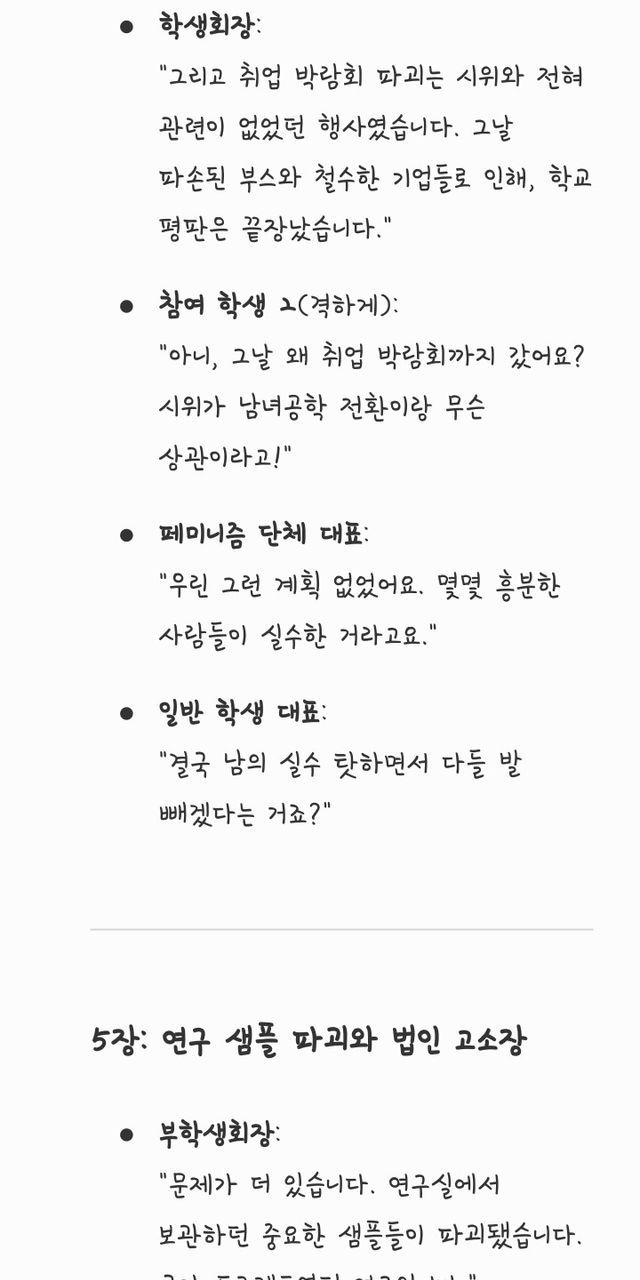 ● 학생회장:
"그리고 취업 박람회 파괴는 시위와 전혀
관련이 없었던 행사였습니다. 그날
파손된 부스와 철수한 기업들로 인해, 학교
평판은 끝장났습니다."
● 참여 학생 2(격하게):
"아니, 그날 왜 취업 박람회까지 갔어요?
시위가 남녀공학 전환이랑 무슨
상관이라고!"
● 페미니즘 단체 대표:
"우린 그런 계획 없었어요. 몇몇 흥분한
사람들이 실수한 거라고요."
● 일반 학생 대표:
"결국 남의 실수 탓하면서 다들 발
빼겠다는 거죠?"
5장: 연구 샘플 파괴와 법인 고소장
● 부학생회장:
"문제가 더 있습니다. 연구실에서
보관하던 중요한 샘플들이 파괴됐습니다.